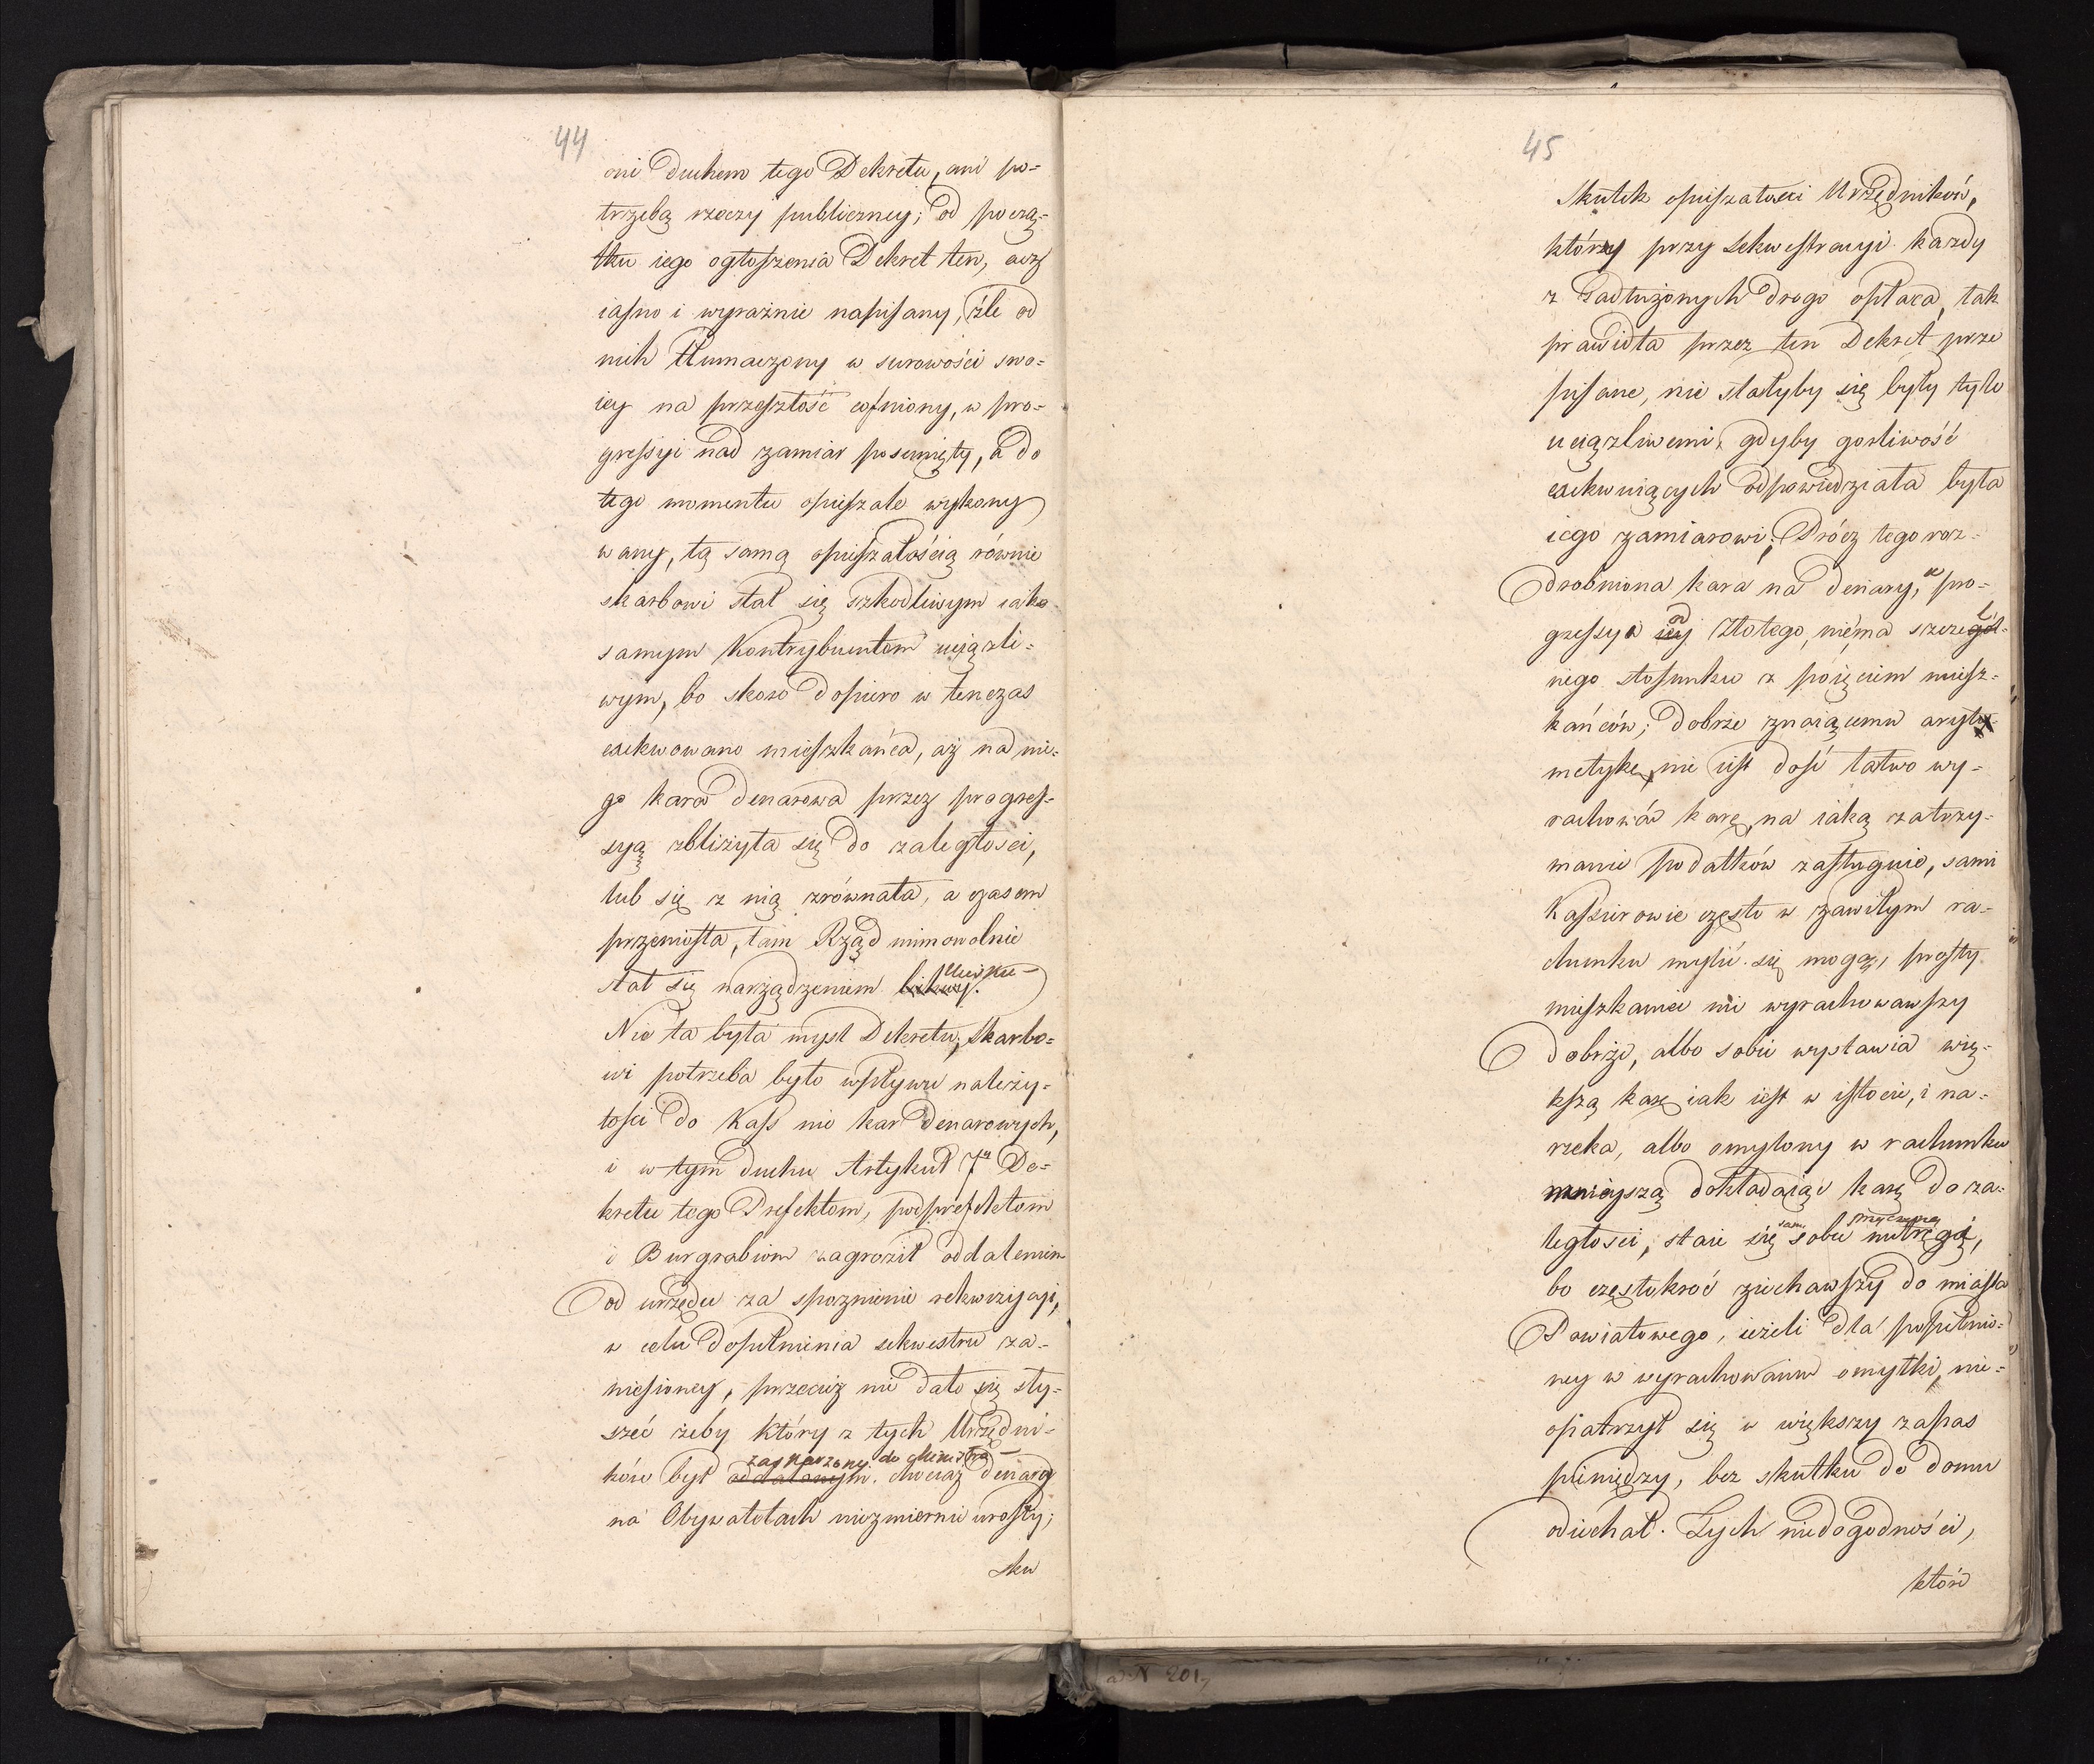 44
ani duchem tego Dekretu, ani po-
trzebą rzeczy publiczney; od począ-
tku iego ogłoszenia Dekret ten, acz
iasno i wyraźnie napisany, źle od
nich tłumaczony w surowości swo-
iey na przeszłość cofniony, w pro-
gressyi nad zamiar posunięty, a do
tego momentu opieszale wykony
wany, tą samą opieszałością równie
skarbowi stał się szkodliwym iako
samym Kontrybuentom uciążli-
wym, bo skoro dopiero w tenczas
exekwowano mieszkańca, aż na nie-
go kara denarowa przez progres-
syą zbliżyła się do zaległości,
lub się z nią zrównała, a czasem
przeniosła, tam Rząd mimowolnie
stał się narzędziem
Nie ta była myśl Dekretu, Skarbo-
wi potrzeba było wpływu należy-
tości do Kass nie kar denarowych,
i w tym duchu Artykuł 7y De-
kretu tego Prefektom, podprefektom
i Burgrabiom zagroził oddaleniem
od urzędu za spoznienie rekwizycyi,
w celu dopełnienia sekwestru za-
niesioney, przecież nie dało się sły-
szeć żeby który z tych Urzędni-
zaskarżony do Ministra
ków był oddalonym. chociaż denary
na Obywatelach niezmiernie urosły;
sku
45
Skutek opieszałości Urzędników,
który przy sekwestracyi każdy
z zadłużonych drogo opłaca, tak
prawidła przez ten Dekret prze
pisane, nie stałyby się były tyle
uciążliwemi, gdyby gorliwość
exekwuiących odpowiedziała była
iego zamiarowi; Prócz tego roz-
drobniona kara na denary, w pro-
gressyi od złotego, niema szczegól-
nego stosunku z poięciem miesz-
kańców; dobrze znaiącemu aryt
metykę, nie iest dość łatwo wy-
rachować karę, na iaką zatrzy-
manie podatków zasługuie, sami
Kassierowie często w zawiłym ra-
chunku mylić się mogą, prosty
mieszkaniec nie wyrachowawszy
dobrze, albo sobie wystawia wię-
kszą karę iak iest w istocie, i na-
rzeka, albo omylony w rachunku
mnieyszą dokładaiąc karę do za-
sam przyczyną
ległości, staie się sobie mitręgą,
bo częstokroć ziechawszy do miasta
Powiatowego, ieżeli dla popełnio-
ney w wyrachowaniu omyłki, nie-
opatrzył się w większy zapas
pieniędzy, bez skutku do domu
odiechał. Tych niedogodności,
które
201